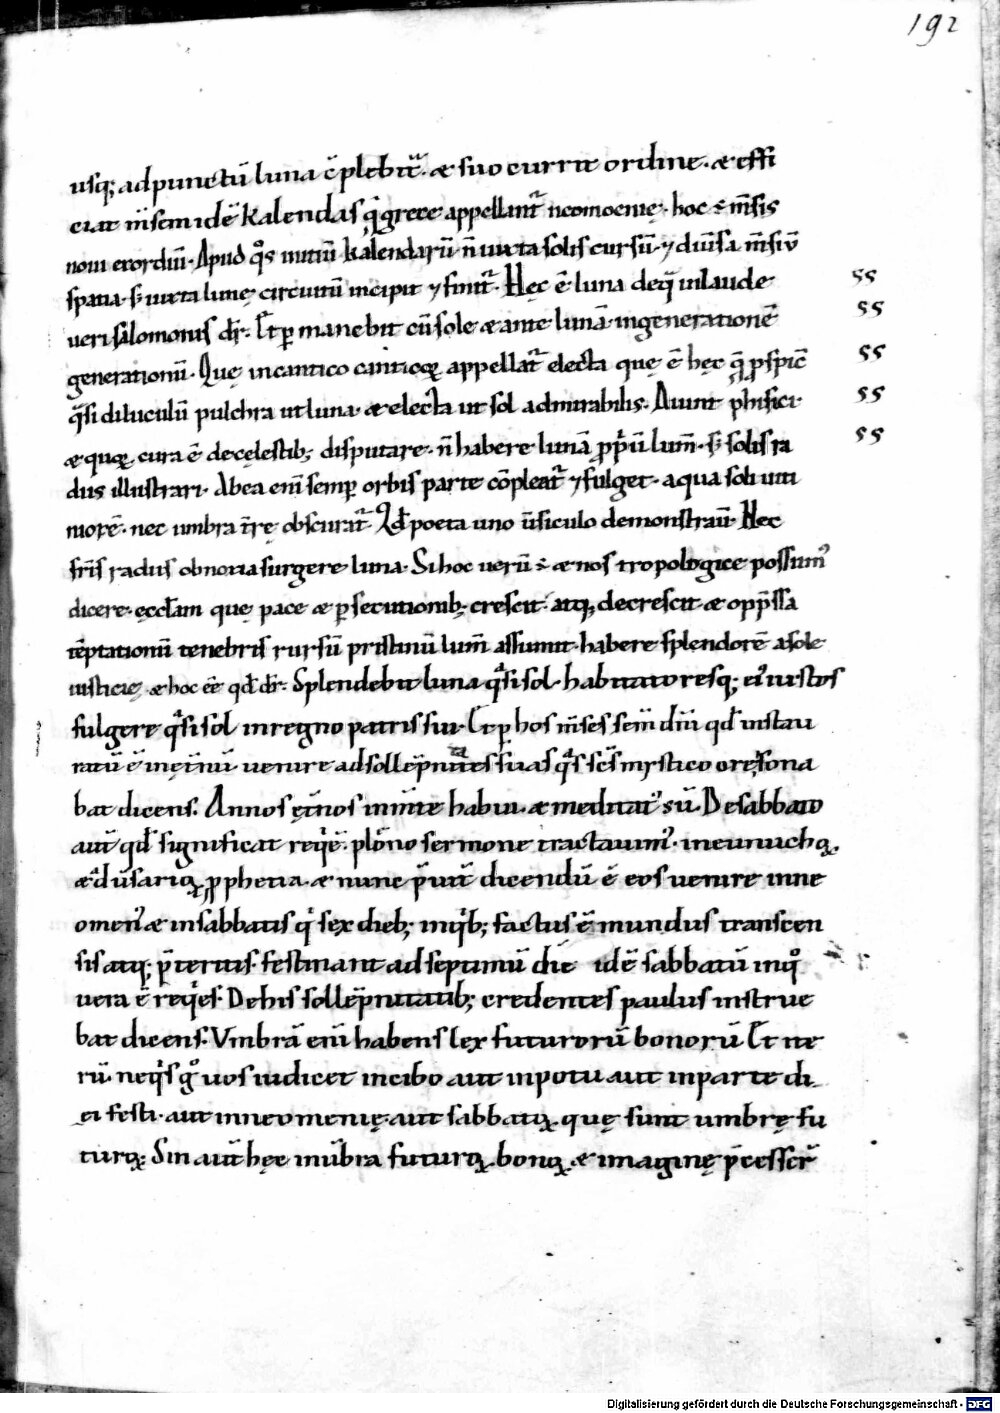 192
usq; ad punctū luna c̄plebit̄. æ suo currit ordine. æ effi
ciat m̄sem idē Kalendas q̇ grece appellant̄ neomenię. hoc ē m̄sis
noui exordiū. Apud q̊s initiū kalendarū n̄ iuxta solis cursū. ⁊ diuisa m̄siū
spatia. s; iuxta lunę circuitū incipit ⁊ finit̄. Hęc ē luna de q̄ in laude ss
ueri salomonis dr̄. Et ꝑmanebit cū sole æ ante lunā. in generationē ss
generationū. Quę in cantico canticoꝝ appellat̄ electa quę ē hęc q̄ ꝓspic̄ ss
q̄si diluculū pulchra ut luna. æ electa ut sol admirabilis. Aiunt phisici ss
æ quoꝝ cura ē de cęlestib; disputare. n̄ habere lunā ꝓpriū lum̄. s; solis ra ss
diis illustrari. Ab ea enī semꝑ orbis parte cōpleat̄ ⁊ fulget. a qua soli uiti
morē. nec umbra t̄rę obscurat̄. Qd̄ poeta uno ūsiculo demonstrau̅. Nec
fr̄is radiis obnoxia surgere luna. Si hoc uerū ē æ nos tropologice possum᾽
dicere. ęccl̄am quę pace æ ꝑsecutionib; crescit. atq; decrescit æ opp̄ssa
tēptationū tenebris rursū pristinū lum̄ assumit. habere splendorē a sole
iusticię æ hoc eē qd̄ dr̄. Splendebit luna q̄si sol. habitatoresq; ei᾽ iustos
fulgere q̄si sol in regno patris sui. Et ꝑ hos m̄ses sem̄ diuī qd̄ instau
ratū ē in ęt̄nū uenire ad sollēpnitates suas q̄s sc̄s mystico ore sona
bat dicens. Annos ęt̄nos in m̄te habui. æ meditat᾽ sū. De sabbato
aut̄ qd̄ significat reqiē. pleno sermone tractauim᾽. in eunuchoꝝ
æ aduersarioꝝ ꝓphetia. æ nunc p̄ut̄ dicendū ē eos uenire in ne
omeniæ in sabbatis q̇ sex dieb; in qib; factus ē mundus transcen
sis atq; p̄teritis. festinant ad septimū diē idē sabbatū in q̊
uera ē reqies. De his sollēpnitatib; credentes paulus instrue
bat dicens. Vmbrā enī habens lex futurorū bonorū. Et ite
rū. neq̇s g̊ uos iudicet in cibo aut in potu aut in parte di
ei festi. aut in neomenię. aut sabbatoꝝ. quę sunt umbrę fu
turoꝝ. Sin aut̄ hęc in ūbra futuroꝝ. bonoꝝ. æ imaginę p̄cesser̄
Digitalisierung gefördert durch die Deutsche Forschungsgemeinschaft - DFG